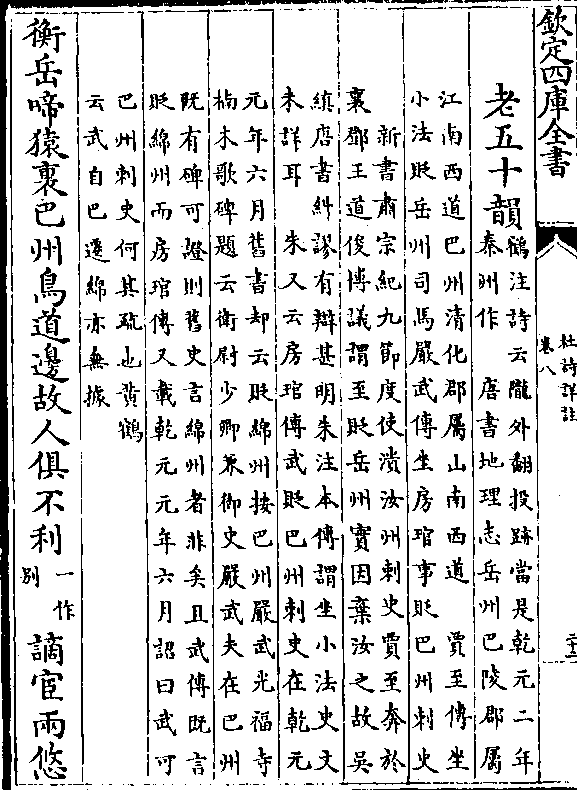 欽定四庫全書
杜詩詳註
卷八
二十三
老五十韻
鶴注詩云隴外翻投跡當是乾元二年
秦州作　唐書地理志岳州巴陵郡屬
江南西道巴州清化郡屬山南西道　賈至傳坐
小法貶岳州司馬嚴武傳坐房琯事貶巴州刺史
新書肅宗紀九節度使潰汝州刺史賈至奔於
襄鄧王道俊博議謂至貶岳州實因棄汝之故吳
縝唐書糾謬有辯甚明朱注本傳謂坐小法史文
未詳耳　朱又云房琯傳武貶巴州刺史在乾元
元年六月舊書却云貶綿州按巴州嚴武光福寺
楠木歌碑題云衛尉少卿兼御史嚴武夫在巴州
既有碑可證則舊史言綿州者非矣且武傳既言
貶綿州而房琯傳又載乾元元年六月詔曰武可
巴州刺史何其疏也黄鶴
云武自巴遷綿亦無據
衡岳啼猿裏巴州鳥道邊故人俱不利
一作
别
謫宦兩悠